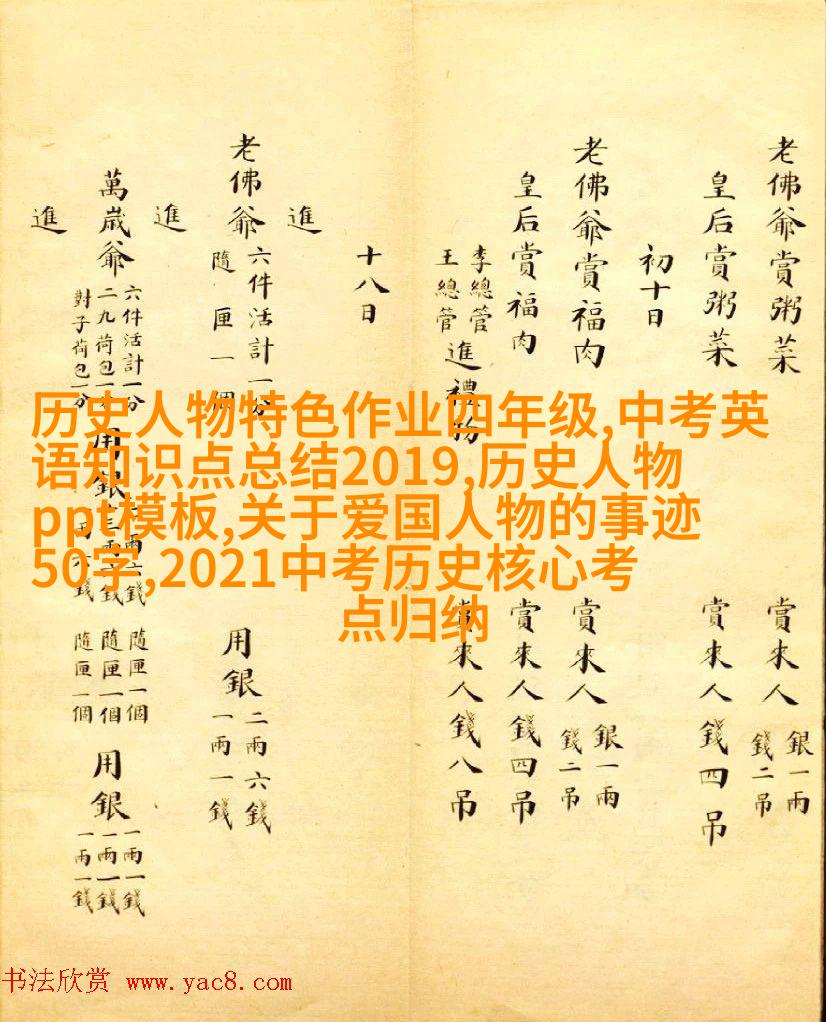 老佛爺賞粥菜 賞來人 銀一兩 錢二吊
皇后賞粥菜 賞來人錢四吊
初十日
老佛爺賞福肉 賞來人 銀一兩 錢二吊
皇后賞福肉 賞來人錢四吊
李總管 王總管 進禮物 賞來人錢八吊
十八日
進
老佛爺 六件活計一分 隨匣一個 用銀 二兩六錢 一兩一錢
進
萬歲爺 六件活計一分 二九荷包一分 對子荷包一分 用銀 隨匣一個 隨匣一個 隨匣一個 用銀 一兩一錢 一兩一錢 一兩一錢
進
历史人物特色作业四年级,中考英
语知识点总结2019,历史人物
ppt模板,关于爱国人物的事迹
50字,2021中考历史核心考
点归纳
书法欣赏 www.yac8.com